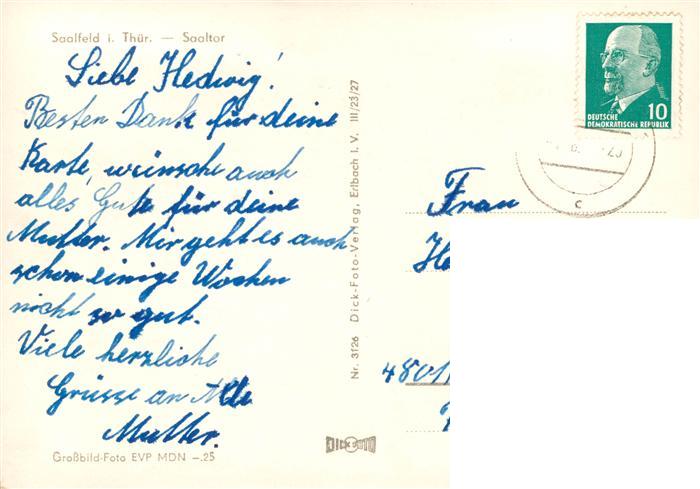 Saalfeld i. Thür. — Saaltor
Liebe Hedwig!
Besten Dank für deine
Karte, wünsche auch
alles Gute für deine
Mutter. Mir geht es auch
schon einige Wochen
nicht so gut.
Viele herzliche
Grüsse an Alle
Mutter.
Großbild-Foto EVP MDN –.25
Nr. 3126 Dick-Foto-Verlag, Erlbach i. V. III/23/27
DICK FOTO
10
DEUTSCHE
DEMOKRATISCHE REPUBLIK
c
Frau
He
4801